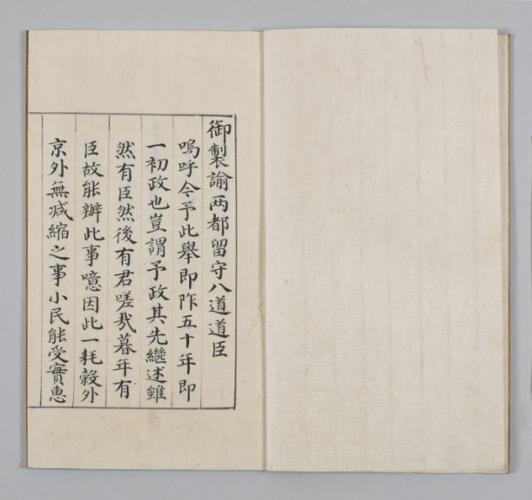 御製諭两都留守八道道臣
嗚呼今予此舉即阼五十年即
一初政也豈謂予政其先繼述雖
然有臣然後有君嗟㢤暮年有
臣故能辦此事噫因此一耗穀外
京外無减縮之事小民能受實惠